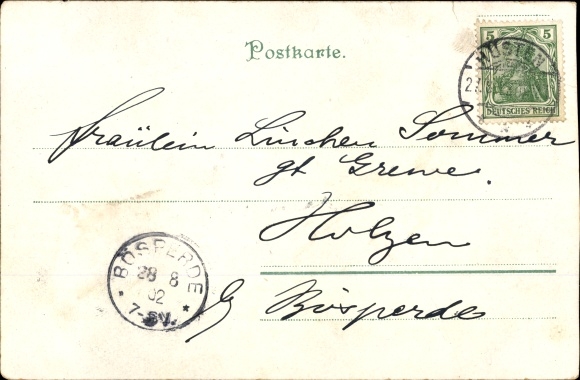 Postkarte.
5 5
DEUTSCHES REICH
HÜSTEN
Fräulein Linchen Sommer
gt Grewe.
Holzen
b/ Bösperde
BÖSPERDE
28 8
02
7-8V.